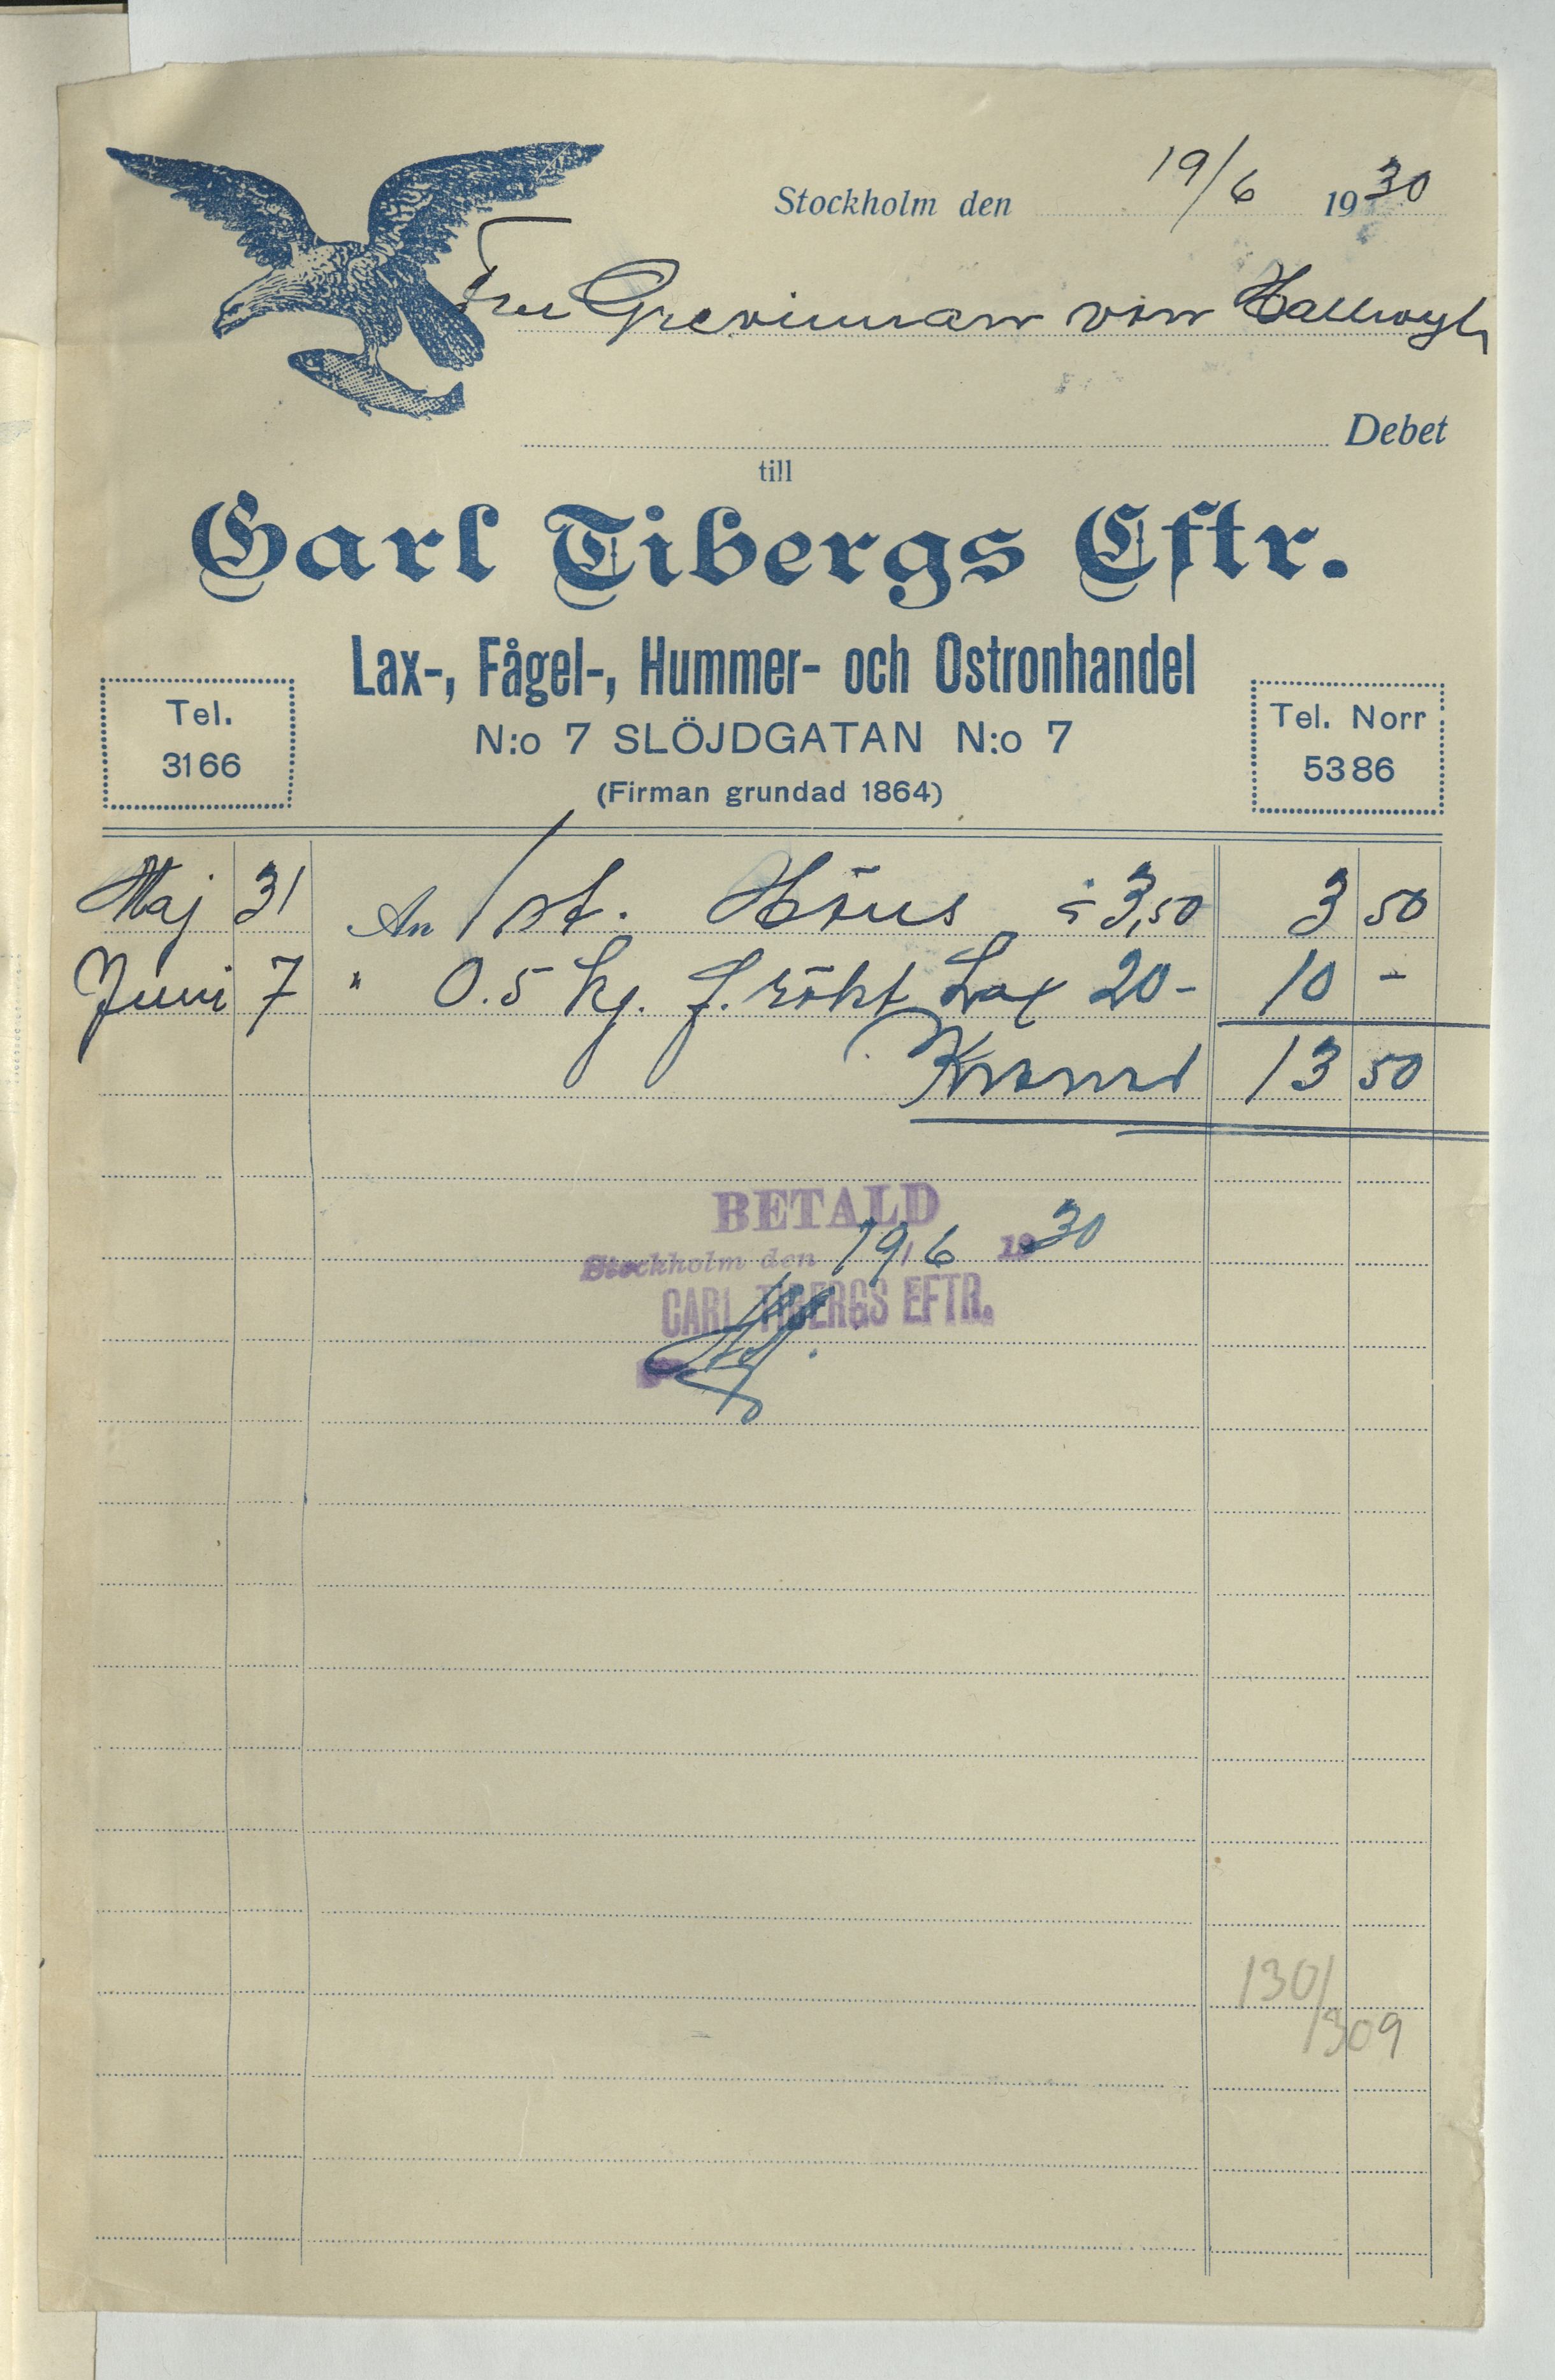 Stockholm den 19/6 1930
Fru Grevinnan von Hallwyl
Debet
till
Carl Tibergs Eftr.
Lax-, Fågel-, Hummer- och Ostronhandel
N:o 7 SLÖJDGATAN N:o 7
(Firman grundad 1864)
Tel.
3166
Tel. Norr
5386
Maj 31 An 1 st. Höns à 3,50 3 50
Juni 7 " 0.5 kg. f. rökt Lax 20- 10 -
Kronor 13 50
BETALD
Stockholm den 19/6 1930
CARL TIBERGS EFTR.
130/
1309